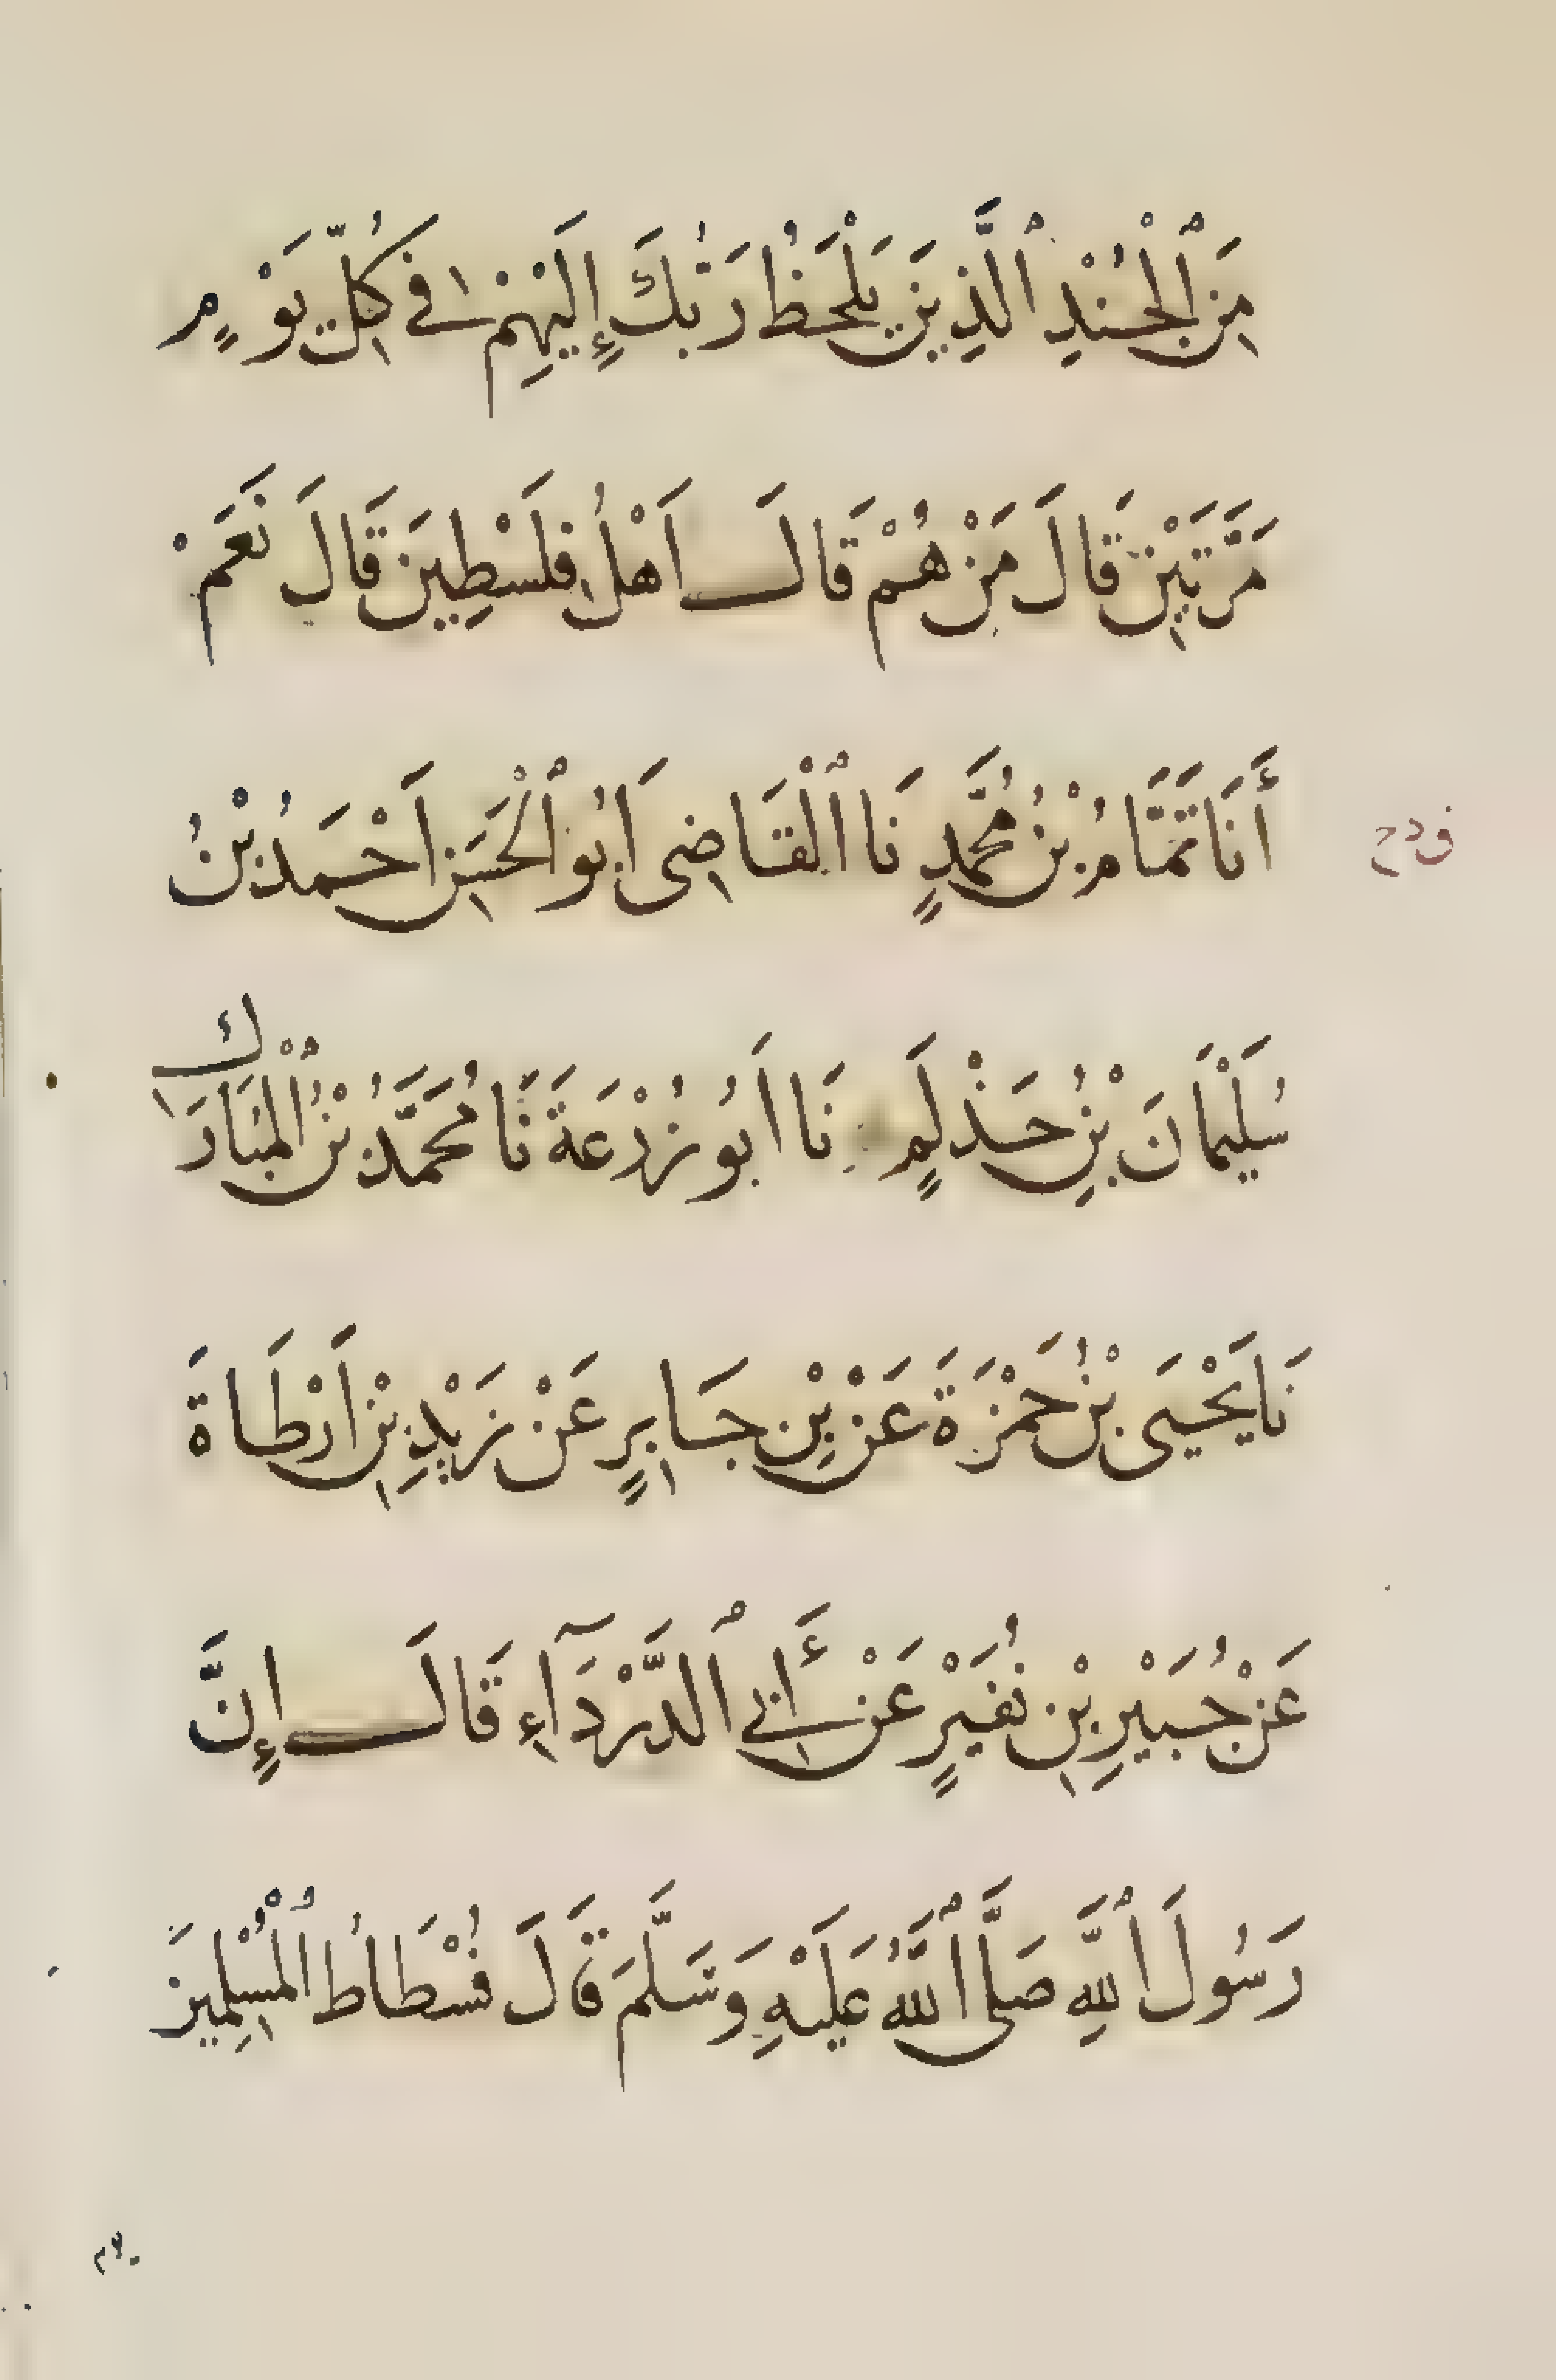 مِنَ ٱلْجُنْدِ ٱلَّذِينَ يَلْحَظُ رَبُّكَ إِلَيْهِمْ فِي كُلِّ يَوْمٍ
مَرَّتَيْنِ قَالَ مَنْ هُمْ قَالَ اَهْلُ فِلَسْطِينَ قَالَ نَعَمْ
أَنَا تَمَّامُ بْنُ مُحَمَّدٍ نَا ٱلْقَاضِى اَبُو ٱلْحَسَنِ اَحْمَدُ بْنُ
سُلَيْمَانَ بْنِ حَذْلَمٍ نَا اَبُو زُرْعَةَ نَا مُحَمَّدُ بْنُ ٱلْمُبَارَكِ
نَا يَحْيَى بْنُ حَمْزَةَ عَنْ بْنِ جَابِرٍ عَنْ زَيْدِ بْنِ اَرْطَاةَ
عَنْ جُبَيْرِ بْنِ نُفَيْرٍ عَنْ أَبِي ٱلدَّرْدَآءِ قَالَ إِنَّ
رَسُولَ ٱللَّهِ صَلَّى ٱللَّهُ عَلَيْهِ وَسَلَّمَ قَالَ فُسْطَاطُ ٱلْمُسْلِمِينَ